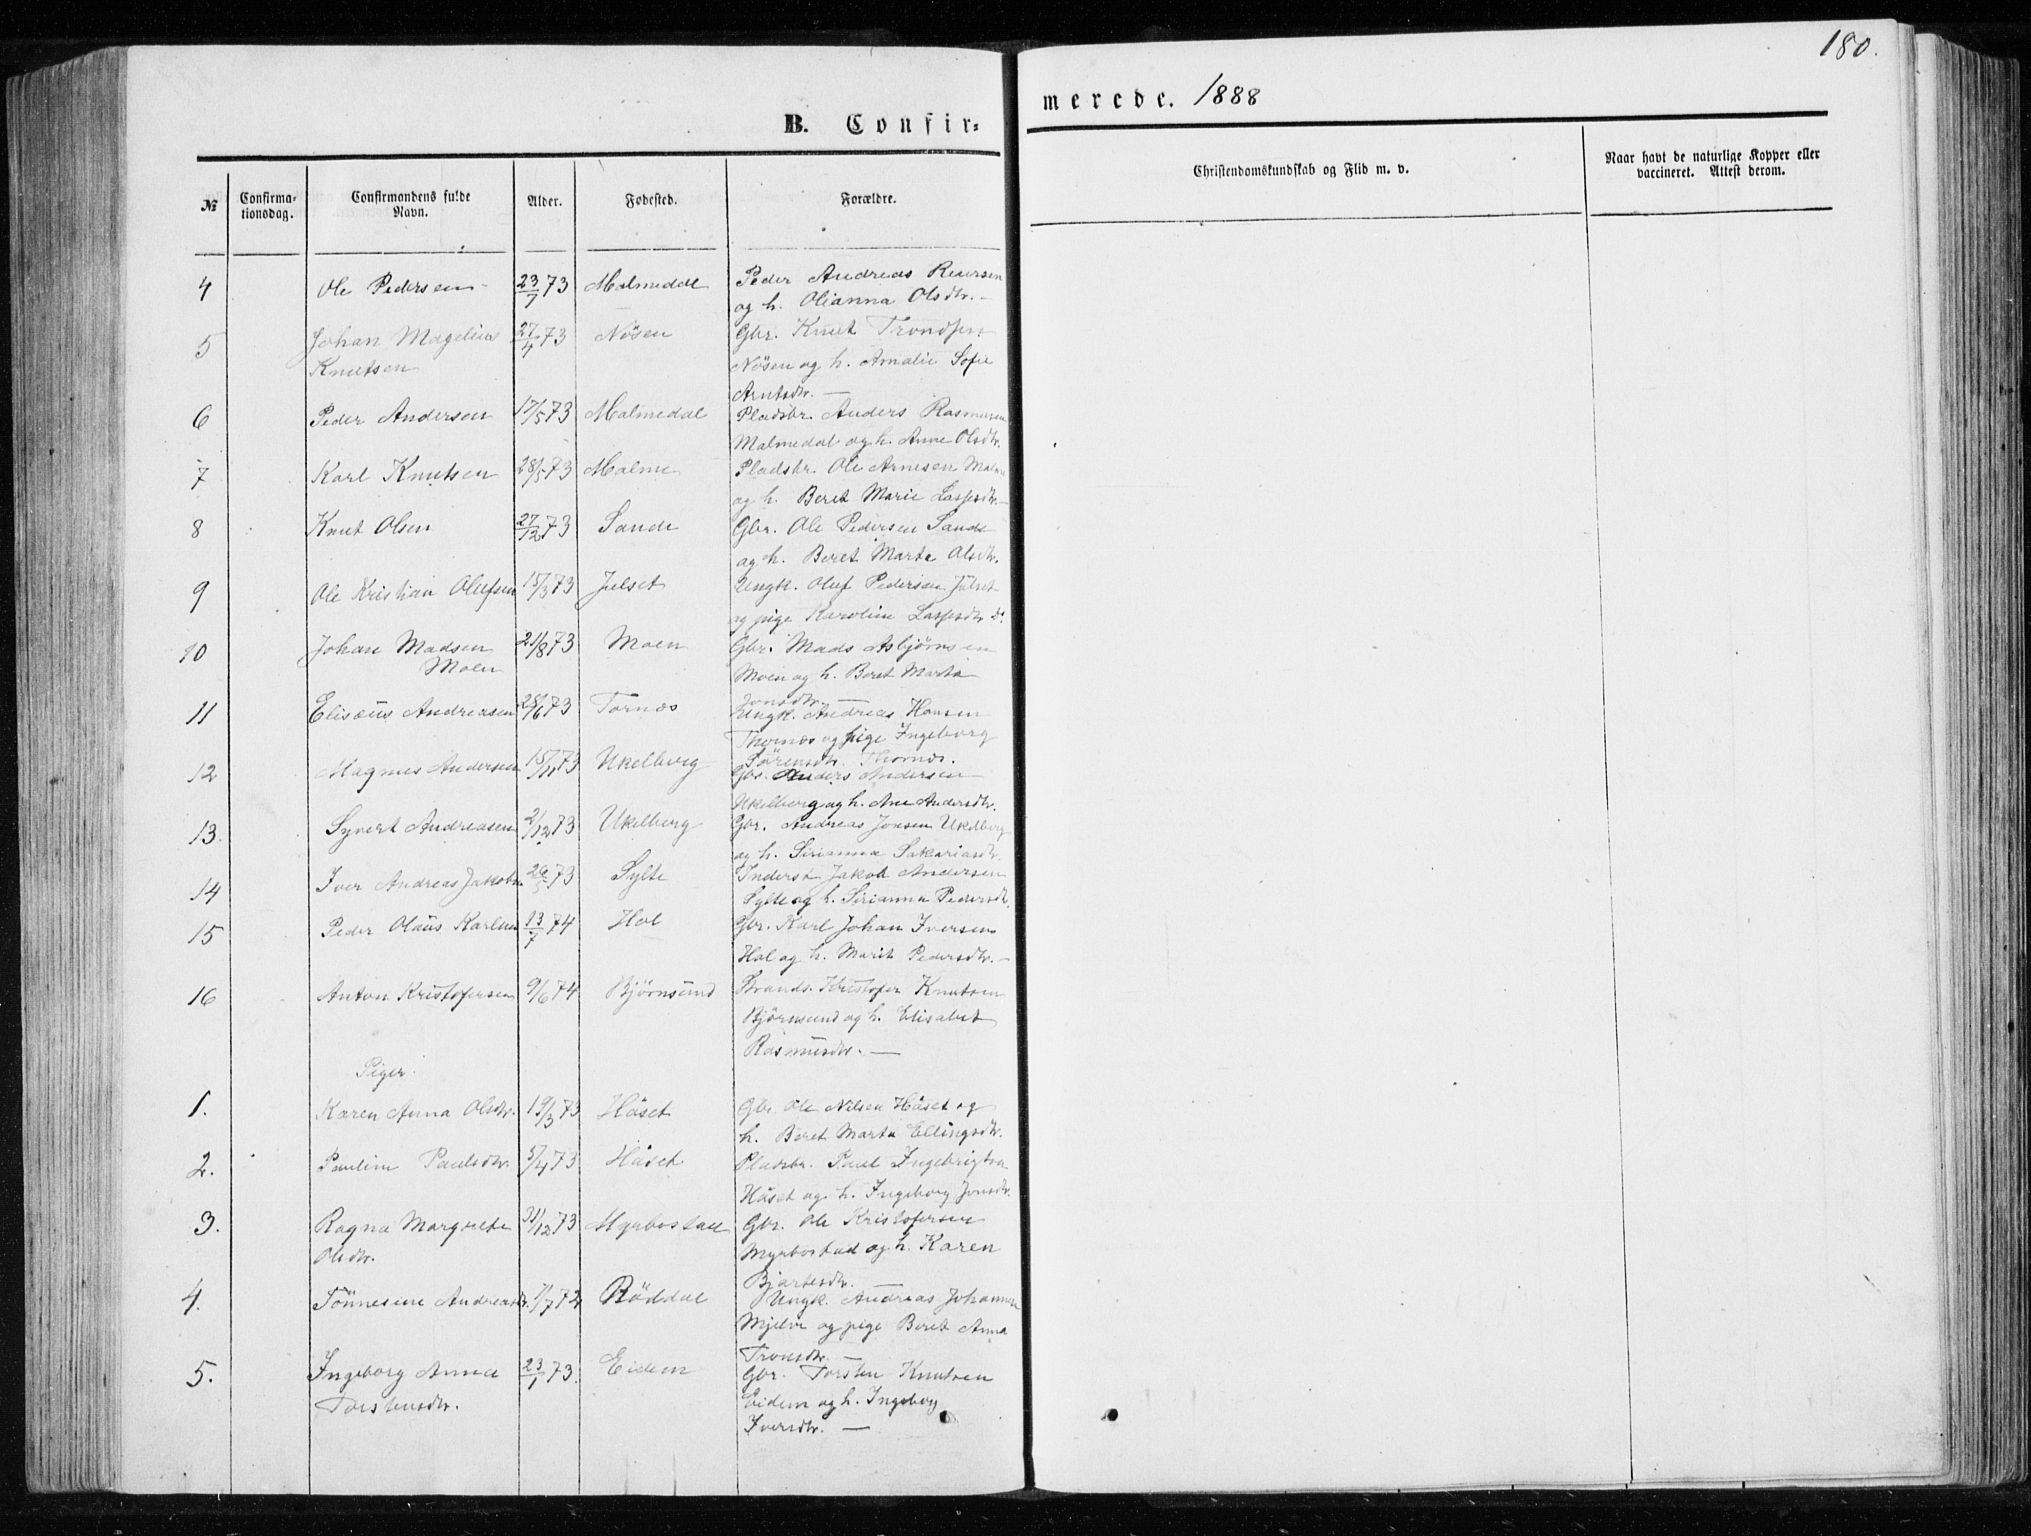 180.
B. Confir-
merede. 1888
№
Confirma-
tionsdag.
Confirmandens fulde
Navn.
Alder.
Fødested.
Forældre.
Christendomskundskab og Flid m. v.
Naar havt de naturlige Kopper eller
vaccineret. Attest derom.
4 Ole Pedersen 23/7 73 Malmedal Peder Andreas Reiersen
og h. Olianna Olsdtr. —
5 Johan Magelius 27/4 73 Nösen Gbr. Knut Trondsen
Knutsen Nösen og h. Amalie Sofie
Arntsdtr. —
6 Peder Andersen 17/5 73 Malmedal Pladsbr. Anders Rasmussen
Malmedal og h. Anne Olsdtr.
7 Karl Knutsen 28/5 73 Malme Pladsbr. Ole Arnesen Malme
og h. Beret Marie Lassesdtr. —
8 Knut Olsen 27/12 73 Sande Gbr. Ole Pedersen Sande
og h. Beret Marta Olsdtr.
9 Ole Kristian Olufsen 15/3 73 Julset Ungk. Oluf Pedersen Julset
og pige Karoline Lassesdtr. Do
10 Johan Madsen 21/8 73 Moen Gbr. Mads Asbjörnsen
Moen Moen og h. Beret Marta
Jonsdtr. —
11 Elisæus Andreasen 28/6 73 Tornæs Ungk. Andreas Hansen
Thornæs og pige Ingeborg
Sörensdtr. Thornæs.
12 Magnus Andersen 15/11 73 Ukelberg Gbr. Anders Andersen
Ukelberg og h. Ane Andersdtr.
13. Syvert Andreasen 2/12 73 Ukelberg Gbr. Andreas Jonsen Ukelberg
og h. Sirianna Sakariasdtr.
14 Iver Andreas Jakobsen 73 Sylte Inderst Jakob Andersen
Sylte og h. Sirianna Pedersdtr.
15 Peder Olaus Karlsen 13/7 74 Hol Gbr. Karl Johan Iversen
Hol og h. Marit Pedersdtr. —
16 Anton Kristofersen 9/6 74 Bjørnsund Strands. Kristofer Knutsen
Björnsund og h. Elisabet
Rasmusdtr. —
Piger.
1. Karen Anna Olsdtr. 19/3 73 Håset Gbr. Ole Nilsen Håset og
h. Beret Marta Ellingsdtr.
2. Pauline Paulsdtr. 5/4 73 Håset Pladsbr. Paul Ingebrigtsen
Håset og h. Ingeborg Jonsdtr.
3. Ragna Margrete 31/12 73 Myrbostad Gbr. Ole Kristofersen
Olsdtr. Myrbostad og h. Karen
Bjartesdtr.
4. Tönnesine Andreasdtr. 7/7 72 Röddal Ungk. Andreas Johannesen
Mjelve og pige Beret Anna
Tronsdtr. —
5. Ingeborg Anna 23/1 73. Eidem Gbr. Torsten Knutsen
Torstensdtr. Eidem og h. Ingeborg
Iversdtr. —